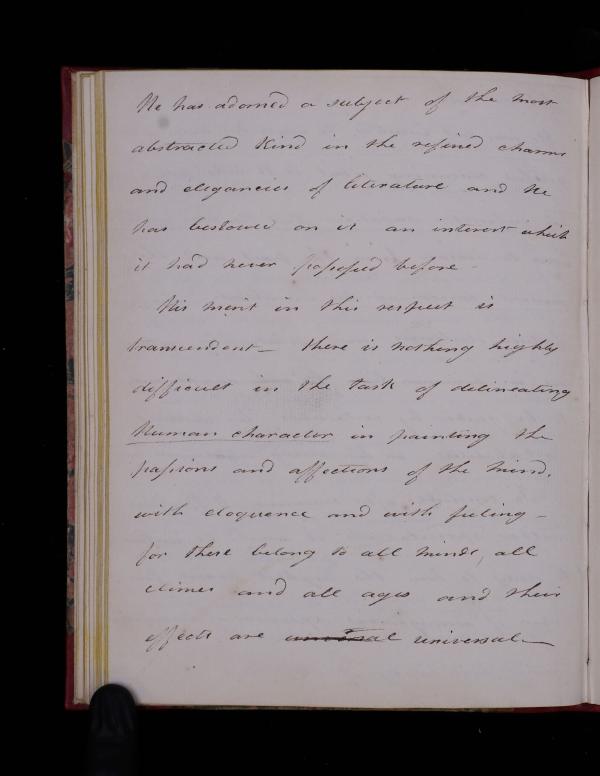 He has adorned a subject of the most
abstracted kind in the refined charms
and elegancies of literature and he
has bestowed on it an interest which
it had never possessed before -
His merit in this respect is
transcendent - there is nothing highly
difficult in the task of delineating
Human character in painting the
passions and affections of the mind,
with eloquence and with feeling -
for these belong to all minds, all
climes and all ages and their
effects are universal -